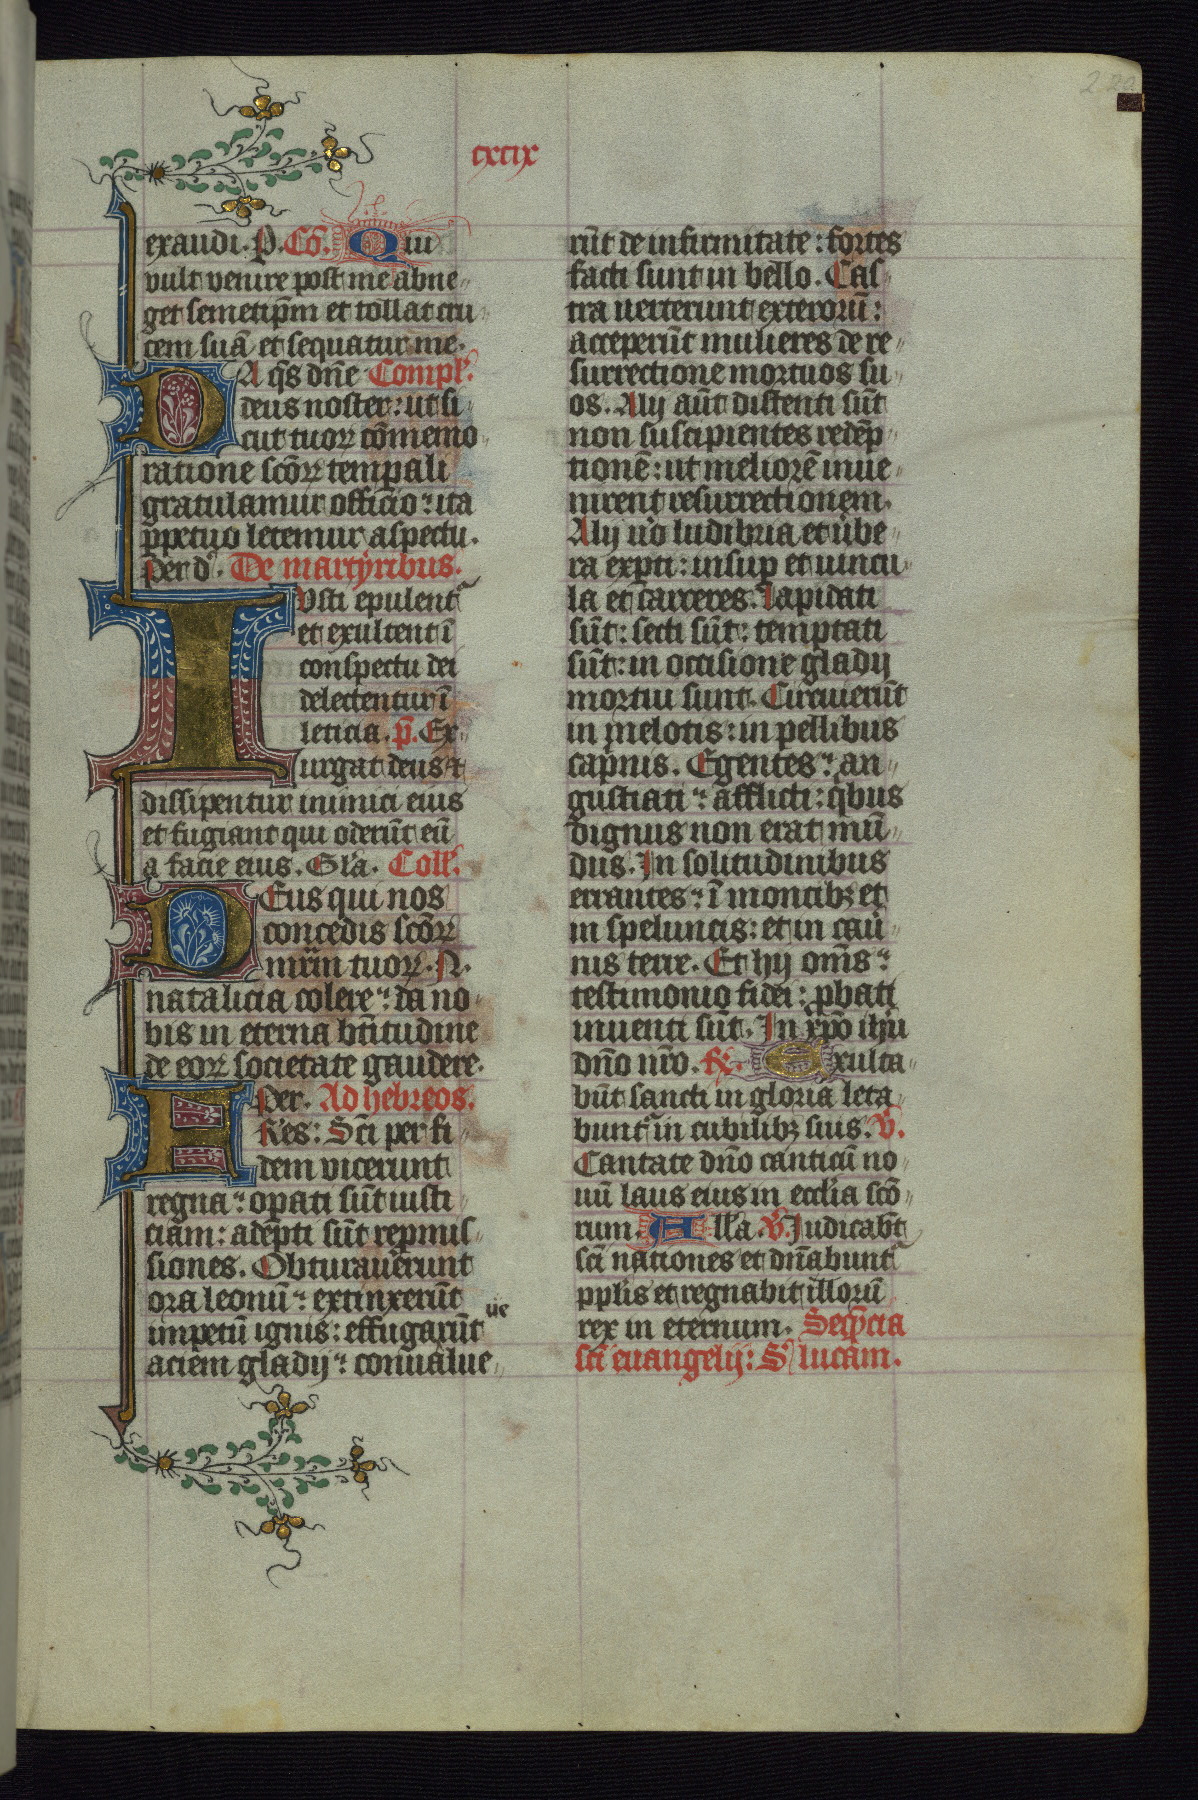 cxcix
exaudi. P. Cō. Qui
vult venire post me abne„
get semetip̄m et tollat cru„
cem suā et sequatur me.
DA q̄s dn̄e Compl'.
deus noster: ut si„
cut tuoꝝ cōmemo„
ratione sc̄oꝝ temp̄ali
gratulamur officio: ita
ꝑpetuo letemur aspectu.
Per d'. De martyribus.
IUsti epulent᷑
et exultent ī
conspectu dei
delectentur ī
leticia. p̄. Ex„
urgat deus ⁊
dissipentur inimici eius
et fugiant qui oderūt eū
a facie eius. Gl'a. Coll'.
DEus qui nos
concedis sc̄oꝝ
mr̄m tuoꝝ. N.
natalicia colere: da no„
bis in eterna bt̄itudine
de eoꝝ societate gaudere.
Per. Ad hebreos.
FRes: Sc̄i per fi„
dem vicerunt
regna: oꝑati sūt iusti„
ciam: adēpti sūt repmis„
siones. Obturauerunt
ora leonū: extinxerūt
impetū ignis: effugarūt
aciem gladij: conualue„ ue
rūt de infirmitate: fortes
facti sunt in bello. Cas„
tra verterunt exterorū:
acceperūt mulieres de re„
surrectione mortuos su„
os. Alij aūt distenti sūt
non suscipientes redēp„
tionē: ut meliorē inue„
nirent resurrectionem.
Alij v'o ludibria et v'be„
ra expti: insuꝑ et vincu„
la et carceres. Lapidati
sūt: secti sūt: temptati
sūt: in occisione gladij
mortui sunt. Circuierūt
in melotis: in pellibus
cap'nis. Egentes: an„
gustiati: afflicti: q'bus
dignus non erat mū„
dus. In solitudinibus
errantes: ī montibꝫ et
in speluncis: et in cau'„
nis terre. Et hij om̄s:
testimonio fidei: ꝓbati
inuenti sūt. In xp̄o ih̄u
dn̄o nr̄o. R̄. Exulta„
būt sancti in gloria leta„
bunt᷑ in cubilibꝫ suis. V.
Cantate dn̄o canticū no„
uū laus eius in eccl'ia sc̄o„
rum. All'a. V. Iudicabt̄
sc̄i nationes et dn̄abunt᷑
ppl'is et regnabit illorū
rex in eternum. Seq̄ncia
sc̄i euangelij: S' lucam.